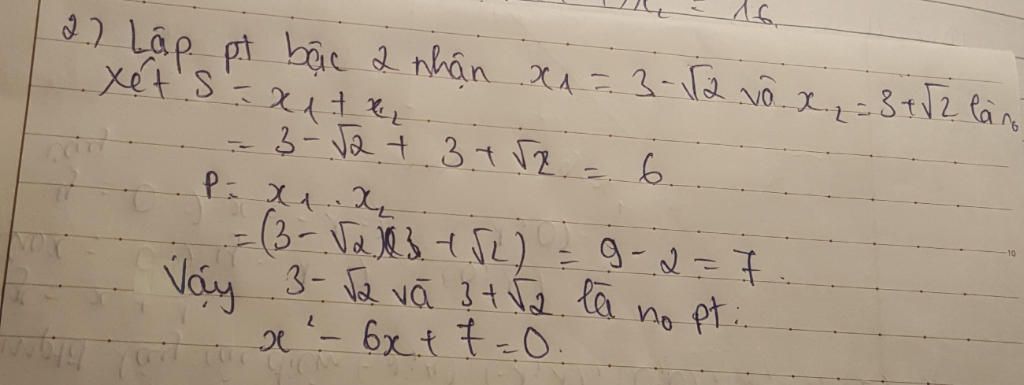 x₂ = 16
2) Lập pt bậc 2 nhận x₁ = 3 - √2 và x₂ = 3 + √2 là n₀
Xét S = x₁ + x₂
= 3 - √2 + 3 + √2 = 6
P = x₁ . x₂
= (3 - √2)(3 + √2) = 9 - 2 = 7.
Vậy 3 - √2 và 3 + √2 là n₀ pt:
x² - 6x + 7 = 0.